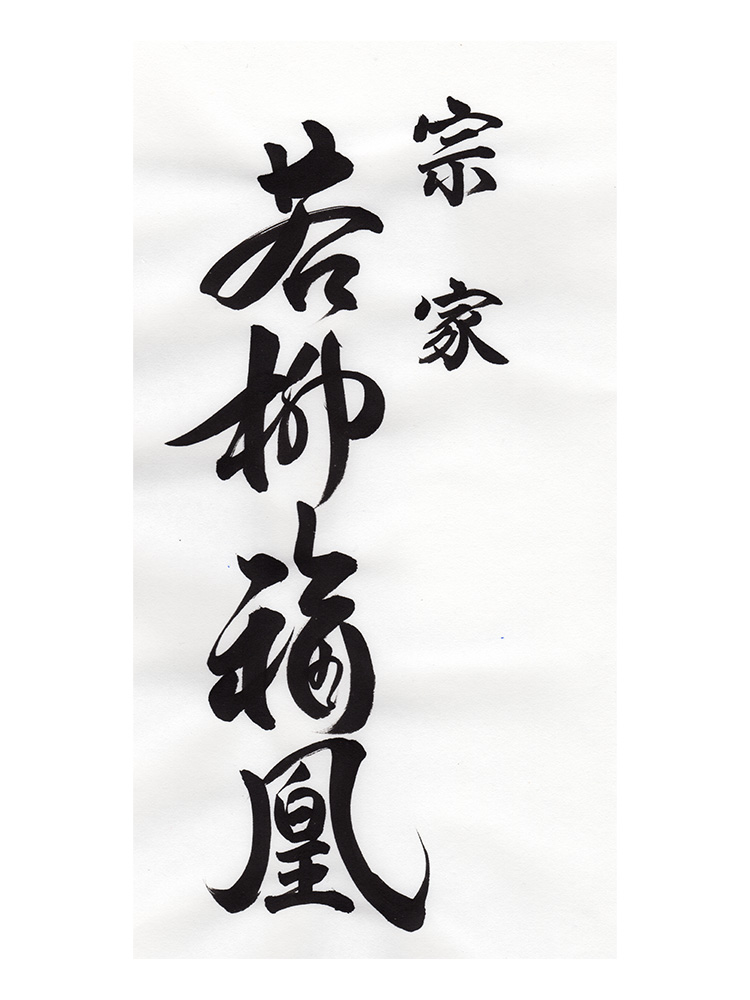 宗家
若柳福凰